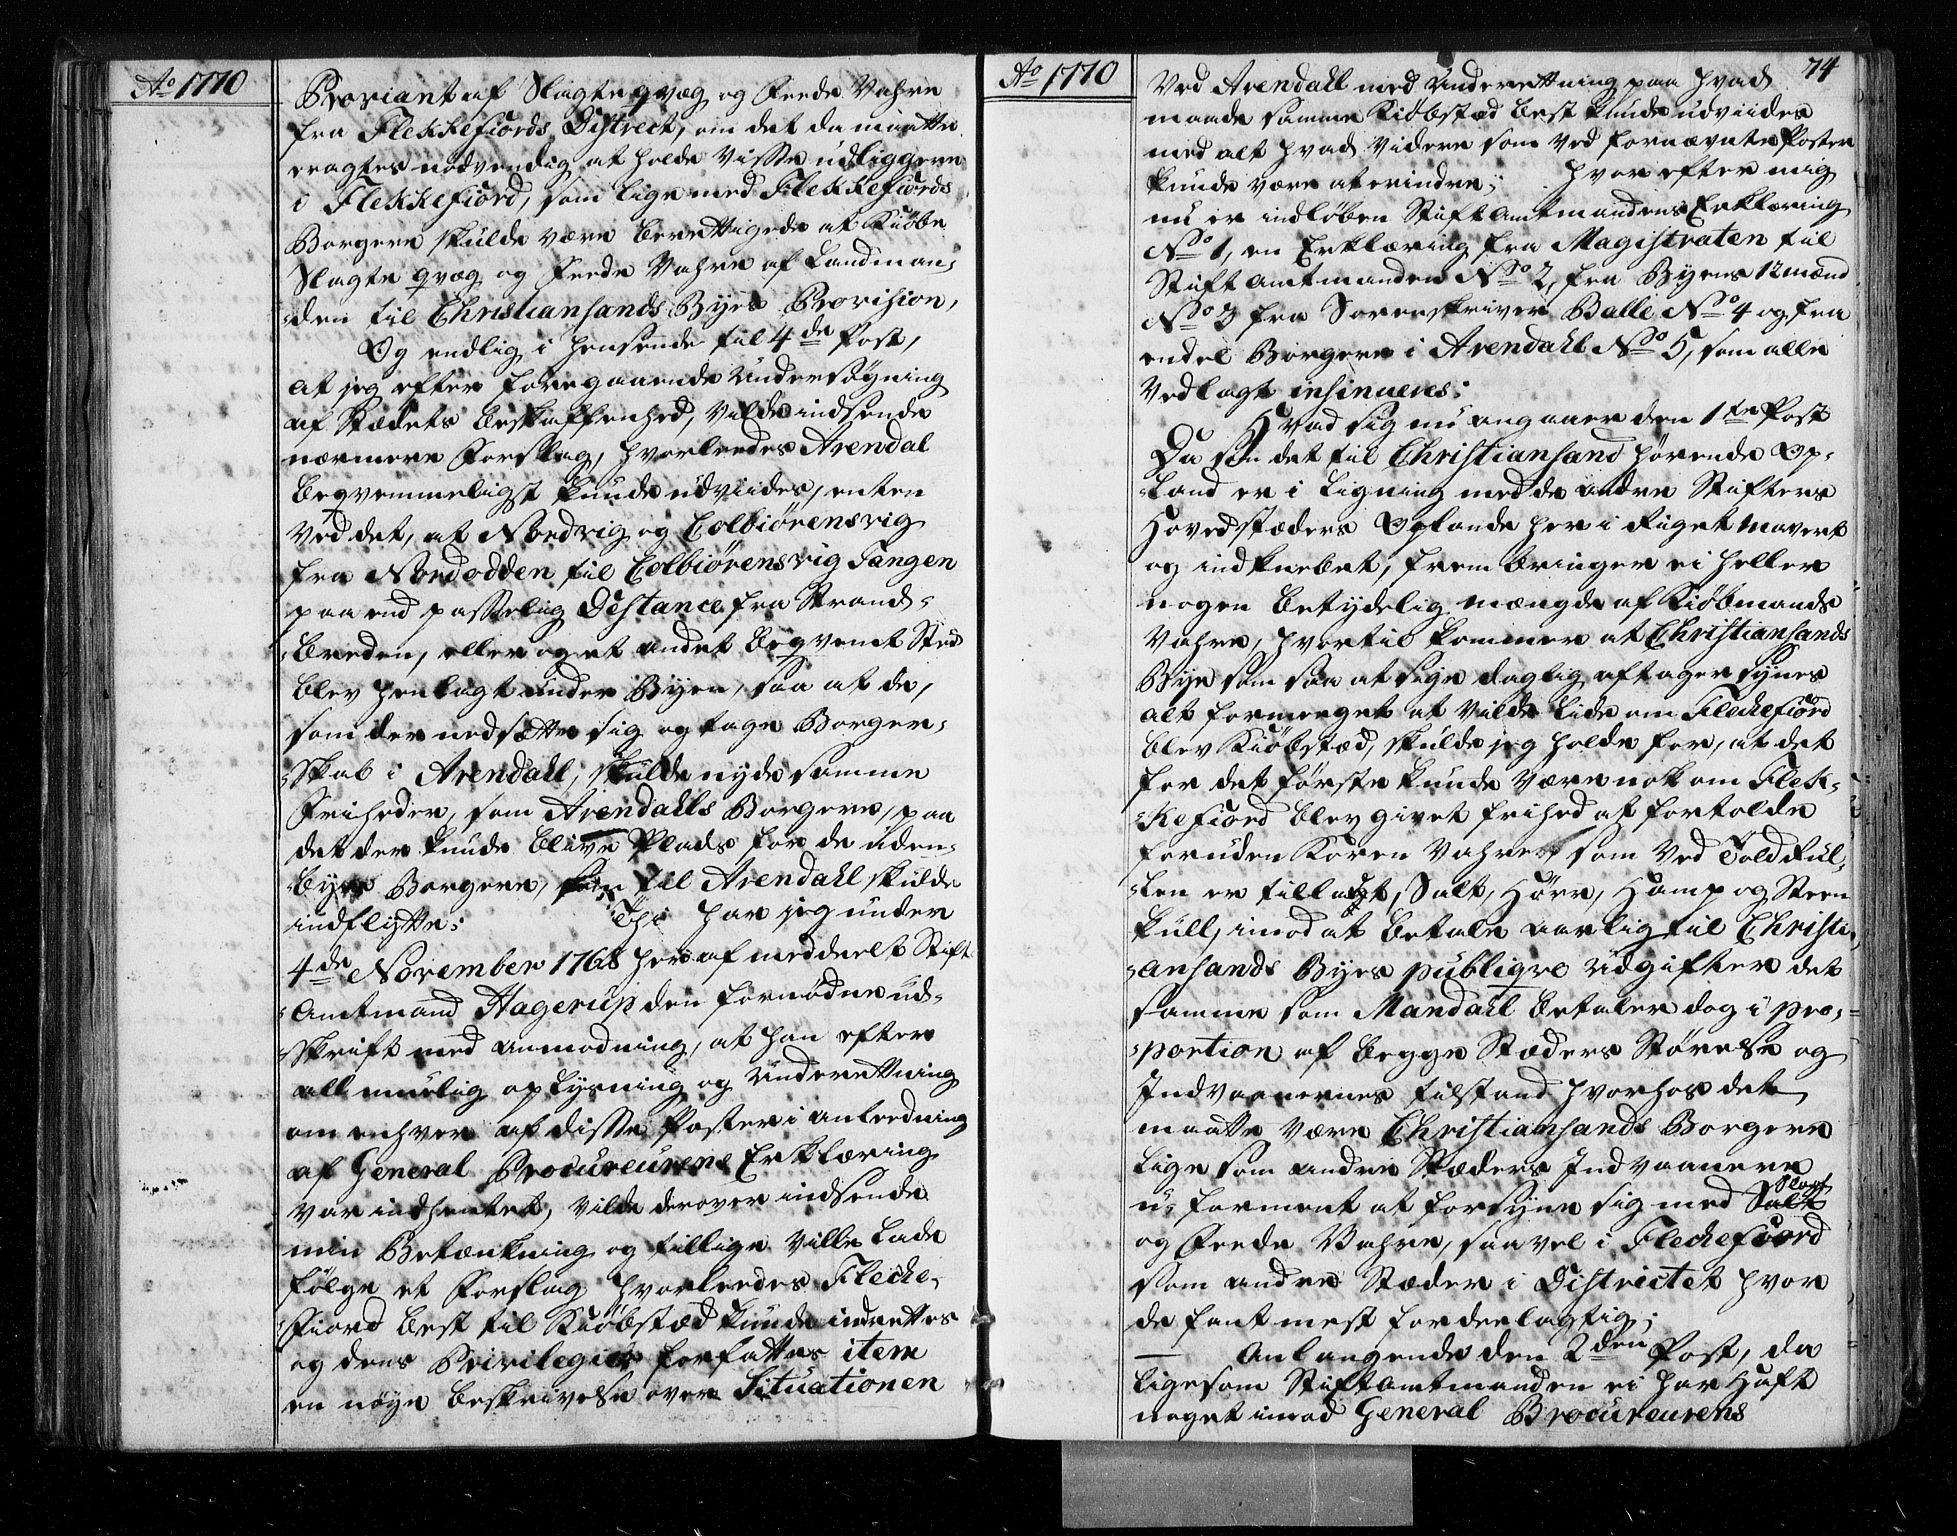 Ao 1770
Proviant af Slagte qvæg og Feede Vahre
fra Flekkefiords District, om det da maatte
eragtes nødvendig at holde visse udliggere
i Flekkefiord, som lige med Flekkefiords
Borgere skulde være berettigede at kiøbe
Slagte qvæg og Feede Vahre af Landman-
-den til Christiansands Byes Provision,
Og endlig i henseende til 4de Post,
at jeg efter foregaaende Undersøgning
af Stædets beskaffenhed, vilde indsende
nærmere Forslag, hvorleedes Arendal
beqvemmeligst kunde udviides, enten
ved det, at Nordvig og Colbiørensvig
fra Nordodden til Colbiørensvig Tangen
paa end passelig Distance fra Strand-
-breden, eller og et andet beqvemt Sted
blev henlagt under Byen, saa at de,
som der nedsætte sig og tage Borger-
-skab i Arendall, skulde nyde samme
Friheder, som Arendalls Borgere, paa
det der kunde blive Plads for de uden-
-byes Borgere, som til Arendall skulde
indflytte; Thi har jeg under
4de November 1768 her af meddeelt Stift
-Amtmand Hagerup den fornødne ud-
-skrift med anmodning, at han efter
all muelig oplysning og Underettning
om enhver af disse Poster i anledning
af General Procureurens Erklæring
var indhentet, vilde derover indsende
min Betænkning og tillige ville lade
følge et Forslag hvorleedes Flecke-
-fiord best til Kiøbstæd kunde indrettes
og dens Privilegier forfattes item
en nøye beskrivelse over Situationen
Ao 1770
74
ved Arendall med Underettning paa hvad
maade samme Kiøbstæd best kunde udviides
med alt hvad videre som ved fornævnte Poster
kunde være at erindre; hvor efter mig
nu er indløben Stiftamtmandens Erklæring
No 1, en Erklæring fra Magistraten til
Stiftamtmanden No 2, fra Byens 12 mænd
No 3 fra Sorenskriver Balle No 4 og fra
endel Borgere i Arendall No 5, som alle
vedlagt insinueres:
Hvad sig nu angaaer den 1te Post
Da som det til Christiansand hørende Op-
-land er i ligning med de andre Stifters
Hovedstæders Oplande her i Riget mavert
og indknebet, frembringer ei heller
nogen betydelig mængde af Kiøbmands
Vahre, hvortil kommer at Christiansands
Bye som saa at sige daglig aftager synes
alt formeget at vilde lide om Fleckefiord
blev Kiøbstæd, skulde jeg holde for, at det
for det første kunde være nok om Flek-
-kefiord blev givet frihed at fortolde
foruden Koren Vahre, som ved Told Rul-
-len er tillagt, Salt, Hørr, Hamp og Steen
kull, imod at betale aarlig til Christi-
-ansands Byes publiqve Udgifter det
samme som Mandall betaler dog i pro-
-portion af begge Stæders Størelse og
Indvaanernes tilstand hvorhos det
maatte være Christiansands Borgere
lige som andre Stæders Indvaanere
u-forment at forsyne sig med Slagt
og Feede Vahre, saavel i Fleckefiord
som andre Stæder i Districtet hvor
de fant mest fordeelagtig;
Anlangende den 2den Post, da
ligesom Stiftamtmanden ei har Haft
noget imod General Procureurens